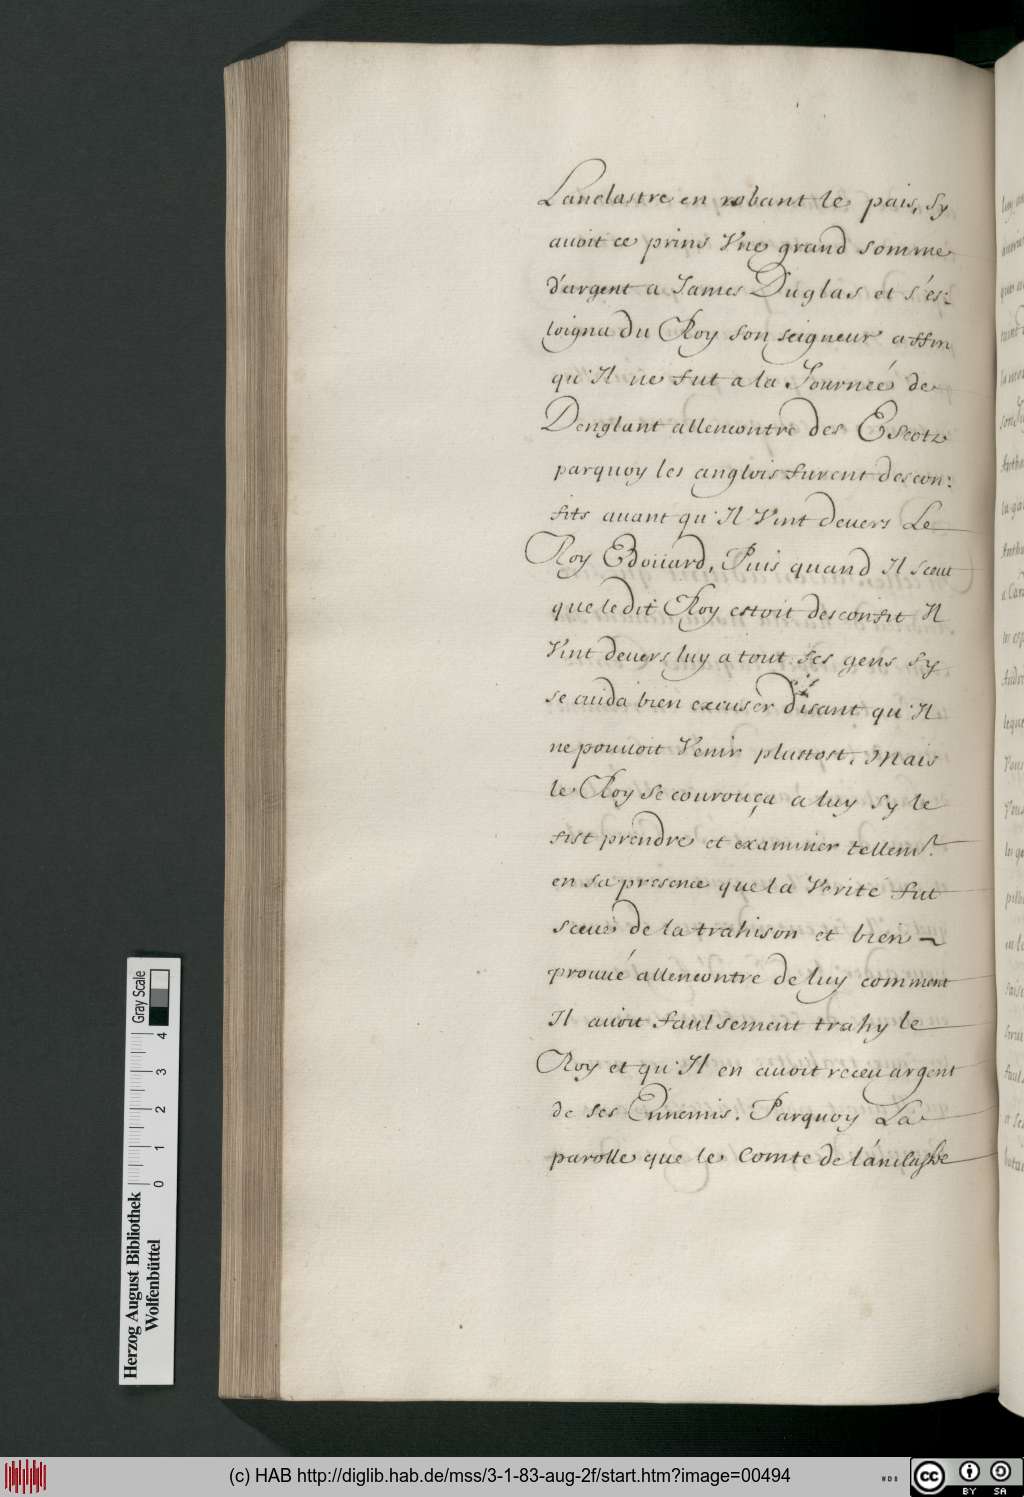 Lanclastre en robant le pais, sy
avoit ce prins Vne grand somme
d'argent a James Duglas et s'es-
loigna du Roy son seigneur affin
qu'Il ne fut a la Journeé de
Denglant allencontre des Escotz
parquoy les anglois furent descon-
fits avant qu'Il Vint devers Le
Roy Edoüard, Puis quand Il sceut
que ledit Roy estoit desconfit Il
Vint devers luy a tout ses gens sy
se cuida bien excuser disant qu'Il
ne pouuoit Venir plustost. Mais
le Roy se courouça a luy sy le
fist prendre et examiner tellemt.
en sa presence que la Verité fut
sceue de la trahison et bien
prouué allencontre de luy comment
Il auoit faulsement trahy le
Roy et qu'Il en auoit receu argent
de ses Ennemis. Parquoy La
parolle que le Comte de lanclastre
Herzog August Bibliothek
Wolfenbüttel
0 1 2 3 4
Gray Scale
(c) HAB http://diglib.hab.de/mss/3-1-83-aug-2f/start.htm?image=00494
WDB
cc BY SA